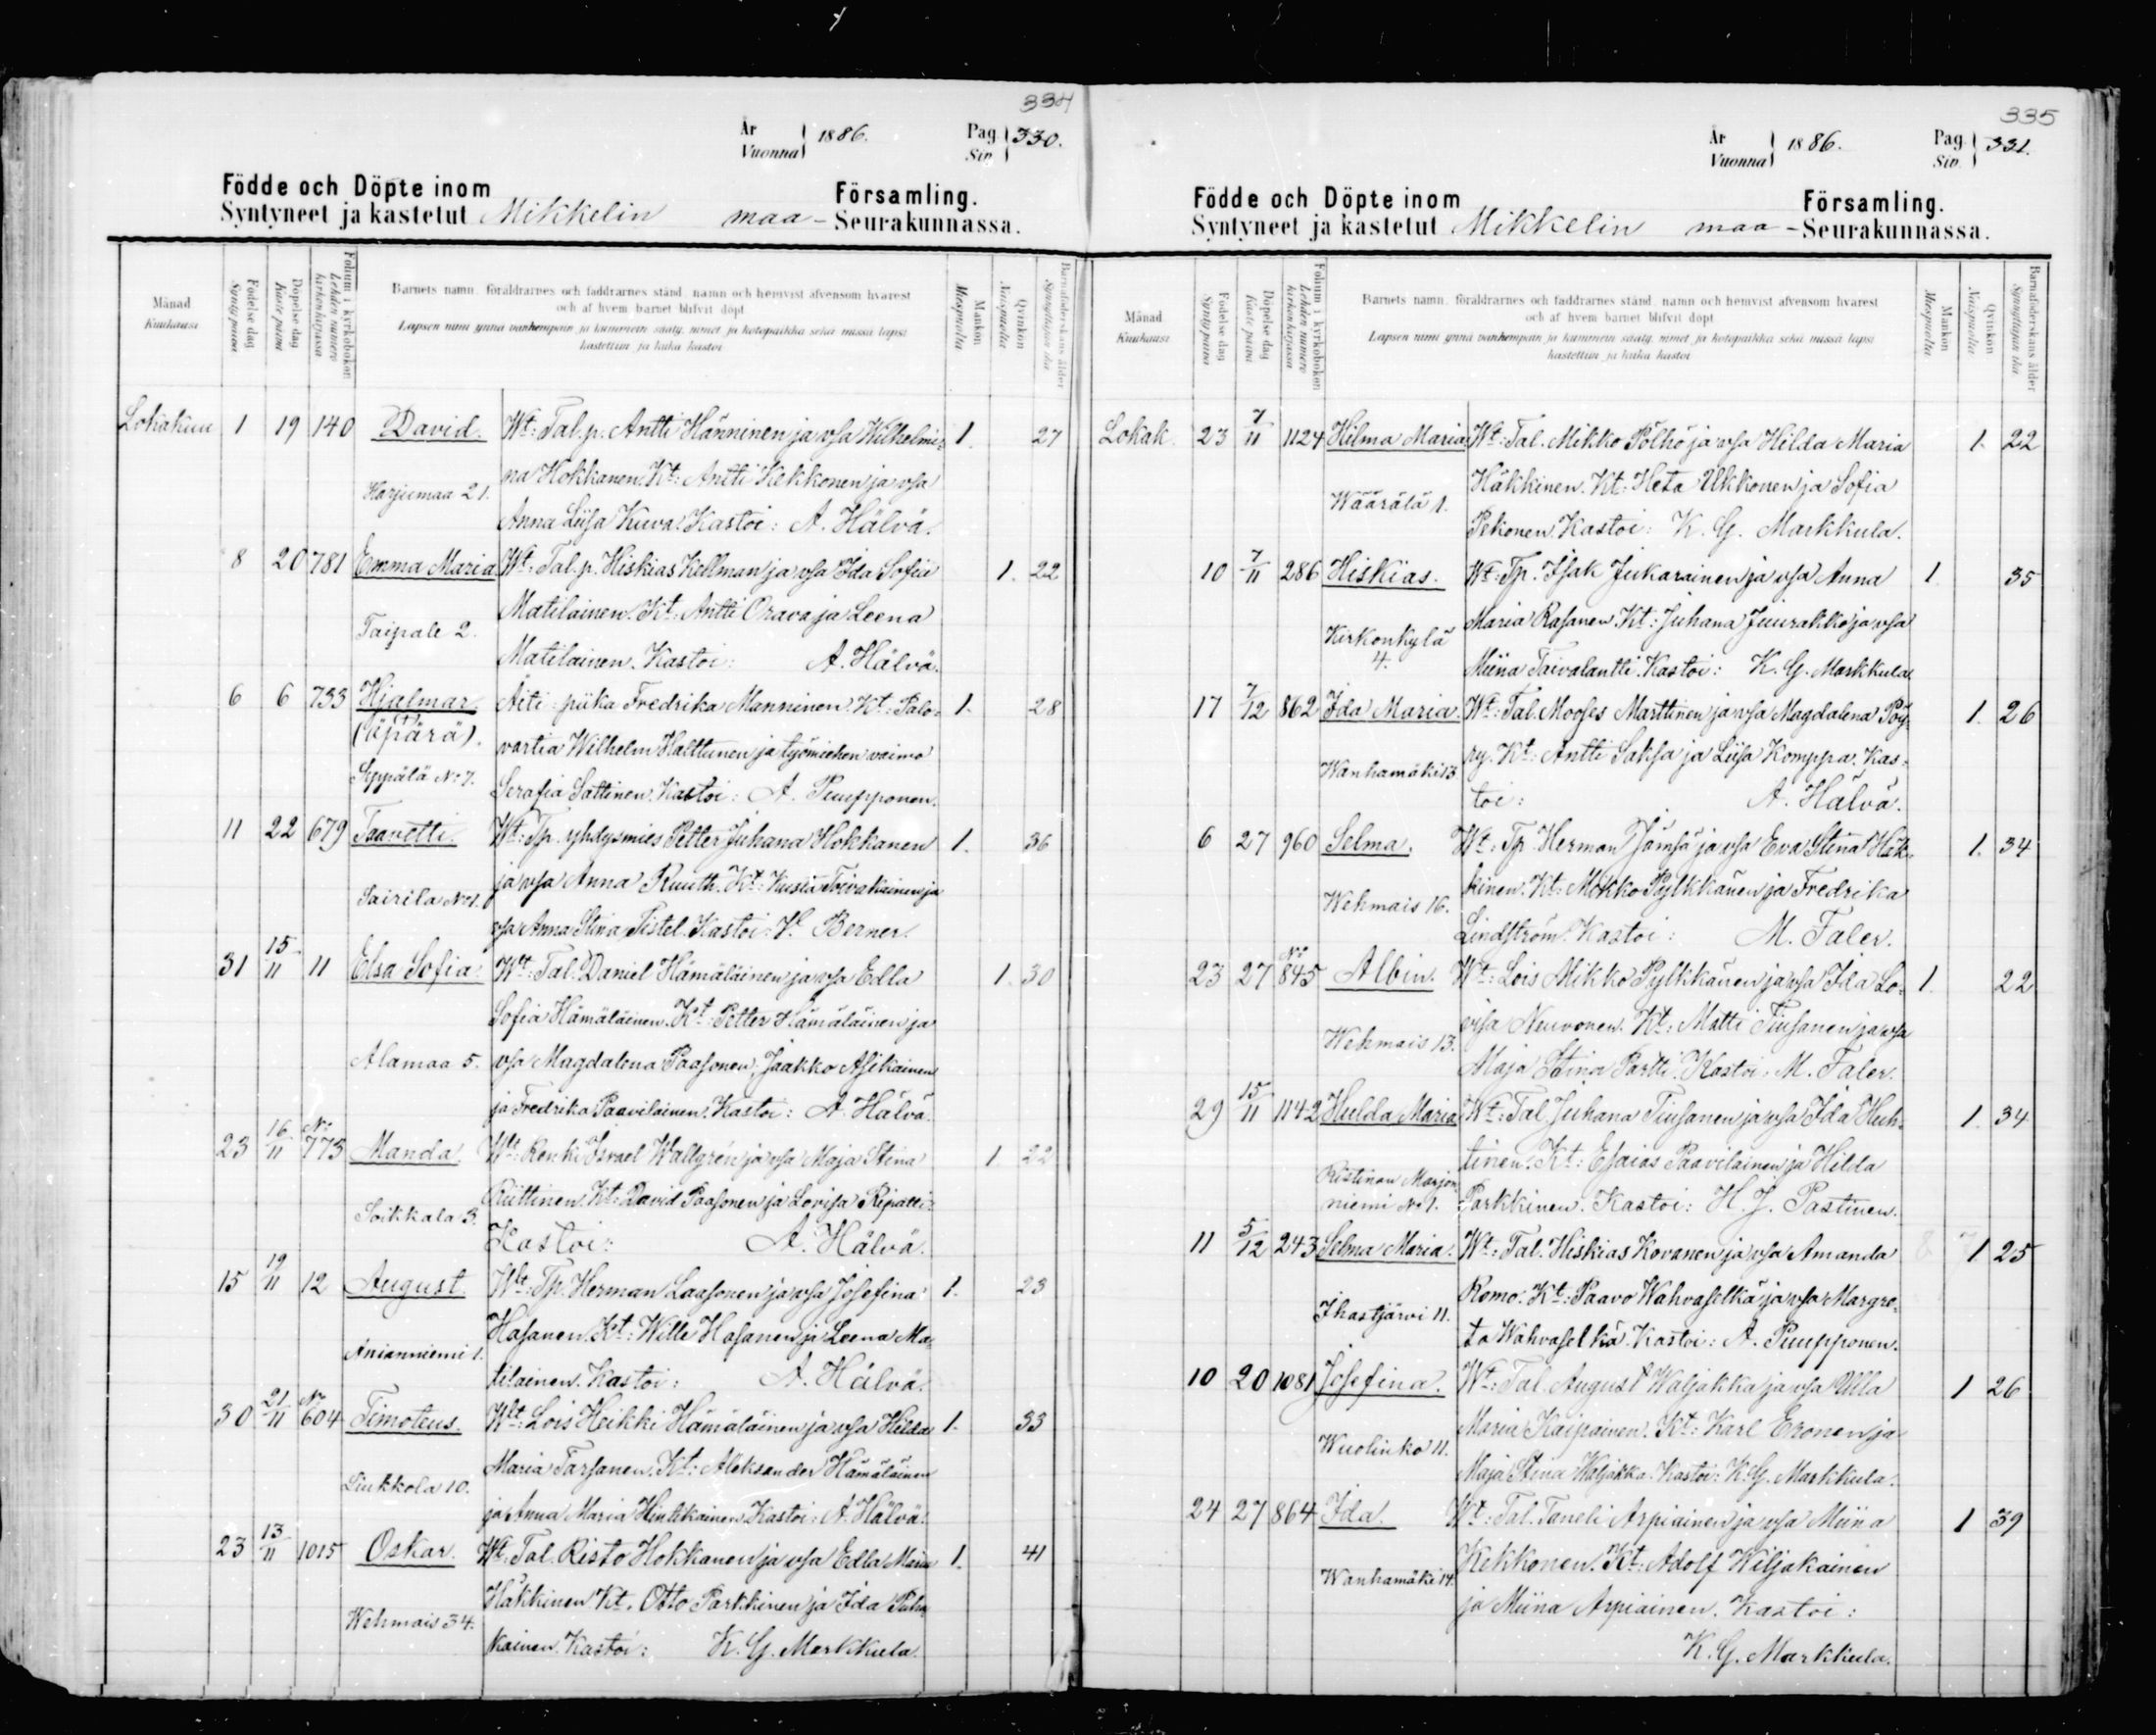 334
År
Vuonna
1886.
Pag.
Siv.
330.
Födde och Döpte inom
Församling.
Syntyneet ja kastetut Mikkelin maa- Seurakunnassa.
Månad
Kuukausi
Födelse dag
Synty päivä
Döpelse dag
Kaste päivä
Folium i kyrkoboken
Lehden numero
kirkonkirjassa
Barnets namn, föräldrarnes och faddrarnes stånd, namn och hemvist äfvensom hvarest
och af hvem barnet blifvit döpt
Lapsen nimi ynnä vanhempain ja kummein sääty, nimet ja kotopaikka sekä missä lapsi
kastettiin ja kuka kastoi
Mankön
Miespuolta
Qvinkön
Naispuolta
Barnaföderskans ålder
Synnyttäjän ikä
Lokakuu 1 19 140 David. Wt: Tal. p. Antti Hänninen ja vsa Wilhelmi- 1. 27
na Hokkanen. Kt: Antti Kekkonen ja vsa
Harjumaa 21.
Anna Liisa Kuva. Kastoi: A. Hälvä.
8 20 781 Emma Maria Wt: Tal. p. Hiskias Kellman ja vsa Ida Sofia 1. 22
Matilainen. Kt. Antti Orava ja Leena
Taipale 2.
Matilainen. Kastoi: A. Hälvä.
6 6 733 Hjalmar Äiti piika Fredrika Manninen. Kt: Palo- 1. 28
(äpärä).
vartia Wilhelm Halttunen ja työmiehen vaimo
Seppälä No 7.
Serafia Sattinen. Kastoi: A. Pumpponen.
11 22 679 Taavetti. Wt: Tp. yhdysmies Petter Juhana Hokkanen 1. 36
ja vsa Anna Ruuth. Kt: Kusta Toivakainen ja
Sairila No 1.
vsa Anna Stina Tistel. Kastoi: Berner.
31 15/11 11 Elsa Sofia. Wt: Tal. Daniel Hämäläinen ja vsa Edla 1. 30
Sofia Hämäläinen. Kt: Petter Hämäläinen ja
Alamaa 5. vsa Magdalena Paasonen, Jaakko Asikainen
ja Fredrika Paavilainen. Kastoi: A. Hälvä.
23 16/11 No 775 Manda. Wt: Renki Israel Wallgrén ja vsa Maja Stina 1. 22
Riittinen. Kt: David Paasonen ja Lovisa Ripatti.
Soikkala 3.
Kastoi: A. Hälvä.
15 19/11 12 August. Wt: Tp. Herman Laasonen ja vsa Josefina 1. 23
Hasanen. Kt: Wille Hasanen ja Leena Ma-
Anianniemi 1.
tilainen. Kastoi: A. Hälvä.
30 21/11 No 604 Timoteus. Wt: Lois Heikki Hämäläinen ja vsa Hilda 1. 33
Maria Tarsanen. Kt: Aleksander Hämäläinen
Liukkola 10.
ja Anna Maria Hintikainen. Kastoi: A. Hälvä.
23 13/11 1015 Oskar. Wt: Tal. Risto Hokkanen ja vsa Edla Maria 1. 41
Häkkinen Kt. Otto Parkkinen ja Ida
Wehmais 34.
kainen. Kastoi: K. G. Markkula.
335
År
Vuonna
1886.
Pag.
Siv.
331.
Födde och Döpte inom
Församling.
Syntyneet ja kastetut Mikkelin maa- Seurakunnassa.
Månad
Kuukausi
Födelse dag
Synty päivä
Döpelse dag
Kaste päivä
Folium i kyrkoboken
Lehden numero
kirkonkirjassa
Barnets namn, föräldrarnes och faddrarnes stånd, namn och hemvist äfvensom hvarest
och af hvem barnet blifvit döpt
Lapsen nimi ynnä vanhempain ja kummein sääty, nimet ja kotopaikka sekä missä lapsi
kastettiin ja kuka kastoi
Mankön
Miespuolta
Qvinkön
Naispuolta
Barnaföderskans ålder
Synnyttäjän ikä
Lokak. 23 7/11 1124 Hilma Maria Wt: Tal. Mikko Pölhö ja vsa Hilda Maria 1. 22
Häkkinen. Kt: Heta Ukkonen ja Sofia
Määrälä 1.
Pekonen. Kastoi: K. G. Markkula.
10 7/11 286 Hiskias. Wt: Tp. Isak Jukarainen ja vsa Anna 1. 35
Maria Rasanen. Kt: Juhana Juurakko ja vsa
Kirkonkylä
4.
Miina Taivalantti. Kastoi: K. G. Markkula.
17 7/12 862 Ida Maria. Wt: Tal. Mooses Marttinen ja vsa Magdalena Pöy- 1. 26
ry. Kt: Antti Saksa ja Liisa Komppa. Kas-
Wanhamäki 13.
toi: A. Hälvä.
6 27 960 Selma. Wt: Tp. Herman Jämsä ja vsa Eva Stina Häk- 1. 34
kinen. Kt: Mikko Pylkkänen ja Fredrika
Wehmais 16.
Lindström. Kastoi: M. Faler.
23 27 No 845 Albin. Wt: Lois Mikko Pylkkänen ja vsa Ida Lo- 1. 22
visa Neuvonen. Kt: Matti Tiusanen ja vsa
Wehmais 13.
Maja Stina Partti. Kastoi. M. Faler.
29 15/11 1142 Hulda Maria Wt: Tal. Juhana Tiusanen ja vsa Ida Huh- 1. 34
tinen. Kt: Esaias Paavilainen ja Hilda
Ristinan Marjon-
niemi No 1. Parkkinen. Kastoi: H. J. Pastinen.
11 5/12 243 Selma Maria. Wt: Tal. Hiskias Kovanen ja vsa Amanda 1 25
Romo. Kt: Paavo Wahvaselkä ja vsa Margre-
Ihastjärvi 11.
ta Wahvaselkä. Kastoi: A. Pumpponen.
10 20 1081 Josefina. Wt: Tal. August Waljakka ja vsa Ulla 1 26
Maria Kaipainen. Kt: Karl Eronen ja
Wuolinko 11.
Maja Stina Waljakka. Kastoi: K. G. Markkula.
24 27 864 Ida. Wt: Tal. Taneli Arpiainen ja vsa Miina 1 39
Kekkonen. Kt: Adolf Wiljakainen
Wanhamäki 14.
ja Miina Arpiainen. Kastoi:
K. G. Markkula.